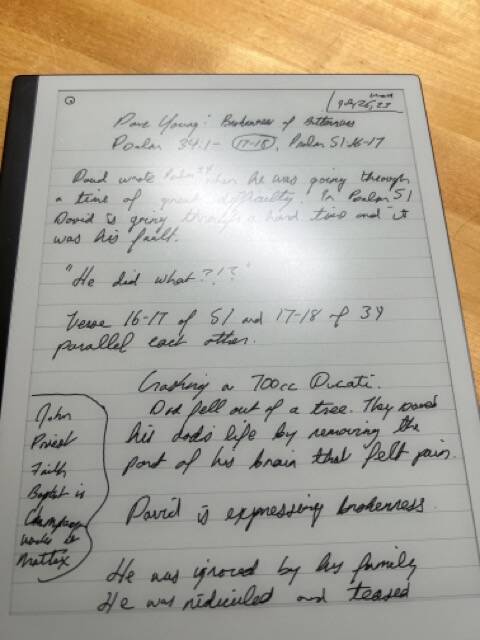 Dave Young: Brokenness of Bitterness
Psalm 34:1- 17-18, Psalm 51:16-17
David wrote Psalm 34 when he was going through
a time of great difficulty. In Psalm 51
David is going through a hard time and it
was his fault.
"He did what?!?"
Verse 16-17 of 51 and 17-18 of 34
parallel each other.
Crashing a 700cc Ducati.
Dad fell out of a tree. They saved
his dad's life by removing the
part of his brain that felt pain.
John
Priest
Faith
Baptist in
David is expressing brokenness.
He was ignored by his family
He was ridiculed and teased